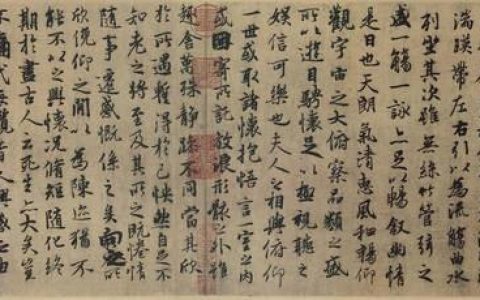 湍暎帶左右引以為流觴曲水
列坐其次雖無絲竹管弦之
盛一觴一詠亦足以暢敘幽情
是日也天朗氣清惠風和暢仰
觀宇宙之大俯察品類之盛
所以遊目騁懷足以極視聽之
娛信可樂也夫人之相與俯仰
一世或取諸懷抱悟言一室之內
或因寄所託放浪形骸之外雖
趣舍萬殊靜躁不同當其欣
於所遇暫得於己怏然自足不
知老之將至及其所之既惓情
隨事遷感慨係之矣向之所
欣俛仰之閒以為陳迹猶不
能不以之興懷況脩短隨化終
期於盡古人云死生亦大矣豈
不痛哉每攬昔人興感之由